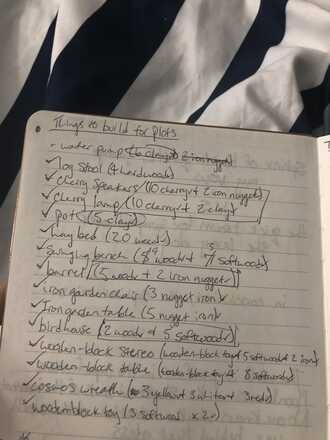 Things to build for plots
• water pump (6 clay + 2 iron nugget)
✓ log stool (4 hardwoods)
✓ cherry speakers (10 cherry + 2 iron nuggets)
✓ cherry lamp (10 cherry + 2 clay)
✓ pot (5 clay)
✓ hay bed (20 weeds)
✓ swinging bench (8 wood + 7 softwood)
✓ barrel (5 wood + 2 iron nugget)
✓ iron garden chair (3 nugget iron)
✓ Iron garden table (5 nugget iron)
✓ birdhouse (2 wood + 5 softwood)
✓ wooden-block stereo (wooden-block toy + 5 softwood + 2 iron)
✓ wooden-block table (wooden-block toy + 8 softwoods)
✓ cosmos wreath (3 yellow + 3 white + 3 reds)
✓ wooden block toy (3 softwood x2)